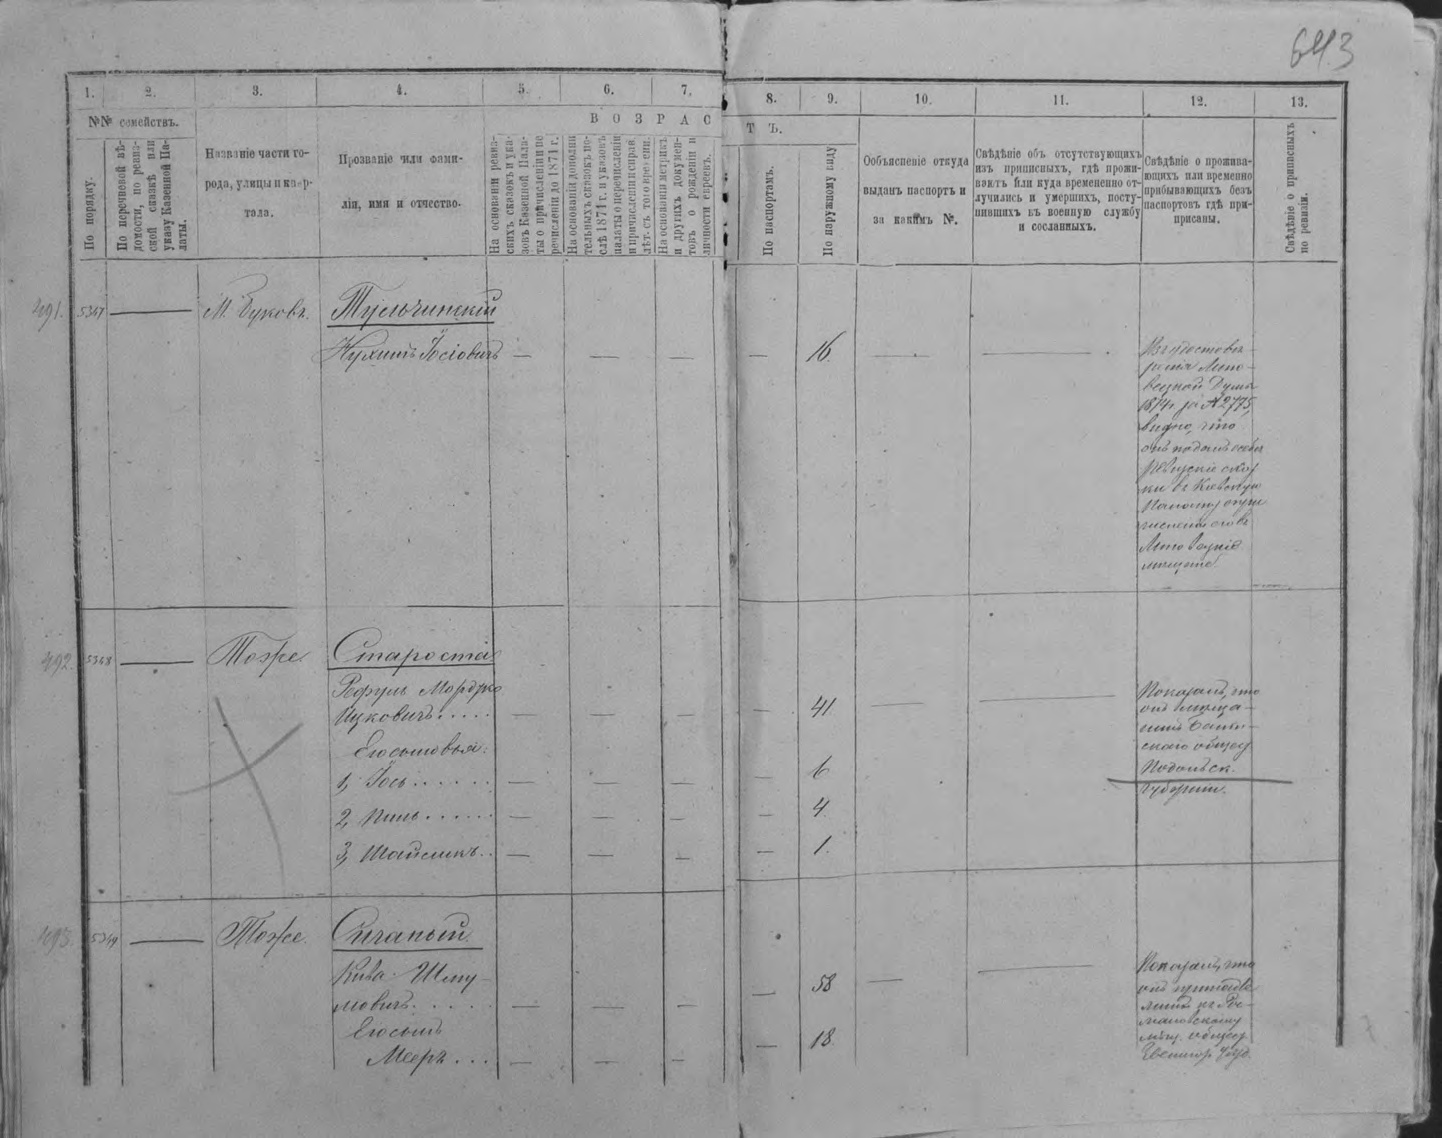 643
1. 2. 3. 4. 5. 6. 7. 8. 9. 10. 11. 12. 13.
№№ семействъ.
В О З Р А С Т Ъ.
По порядку.
По перечневой вѣ-
домости, по ревиз-
ской сказкѣ или
указу Казенной Па-
латы.
Названіе части го-
рода, улицы и квар-
тала.
Прозваніе или фами-
лія, имя и отчество.
На основаніи ревиз-
скихъ сказокъ и ука-
зовъ Казенной Пала-
ты о причисленіи пе
речисленіи до 1871 г.
На основаніи дополни
тельныхъ сказокъ по-
слѣ 1874 г. и указовъ
палаты о перечисленіи
и причисленіи исправ.
лѣт. съ того времени.
На основаніи метрикъ
и другихъ докумен-
товъ о рожденіи и
личности евреевъ.
По паспортамъ.
По наружному виду
Объясненіе откуда
выданъ паспортъ и
за какимъ №.
Свѣдѣніе объ отсутствующихъ
изъ приписныхъ, гдѣ прожи-
ваютъ или куда временно от-
лучились и умершихъ, посту-
пившихъ въ военную службу
и сосланныхъ.
Свѣдѣніе о прожива-
ющихъ или временно
прибывающихъ безъ
паспортовъ гдѣ при-
писаны.
Свѣдѣніе о приписныхъ
по ревизіи.
491. 5347 М. Буковъ. Тульчинскій
Нухимъ Іосіовичъ 16.
Изъ удостовѣ-
ренія Липо-
вецкой Думы
1874 г за № 2775,
видно, что
онъ подалъ особыя
Ревизскія сказ
ки въ Кіевскую
Палату
Липовецкіе
мѣщане
492. 5348 Тоже Староста
Мордко
Ицковичъ 41
Его сыновья:
1, Іось 6
2, Пинь 4
3, 1.
Показалъ, что
онъ мѣща-
нинъ
скаго общес
Подольск.
губерніи.
493. 5349 Тоже
Кива Шму-
ловичъ 58
Его сынъ
Мееръ 18.
Показалъ, что
онъ
къ
мановскому
мѣщ. общес
Звенигор. Уѣзд.